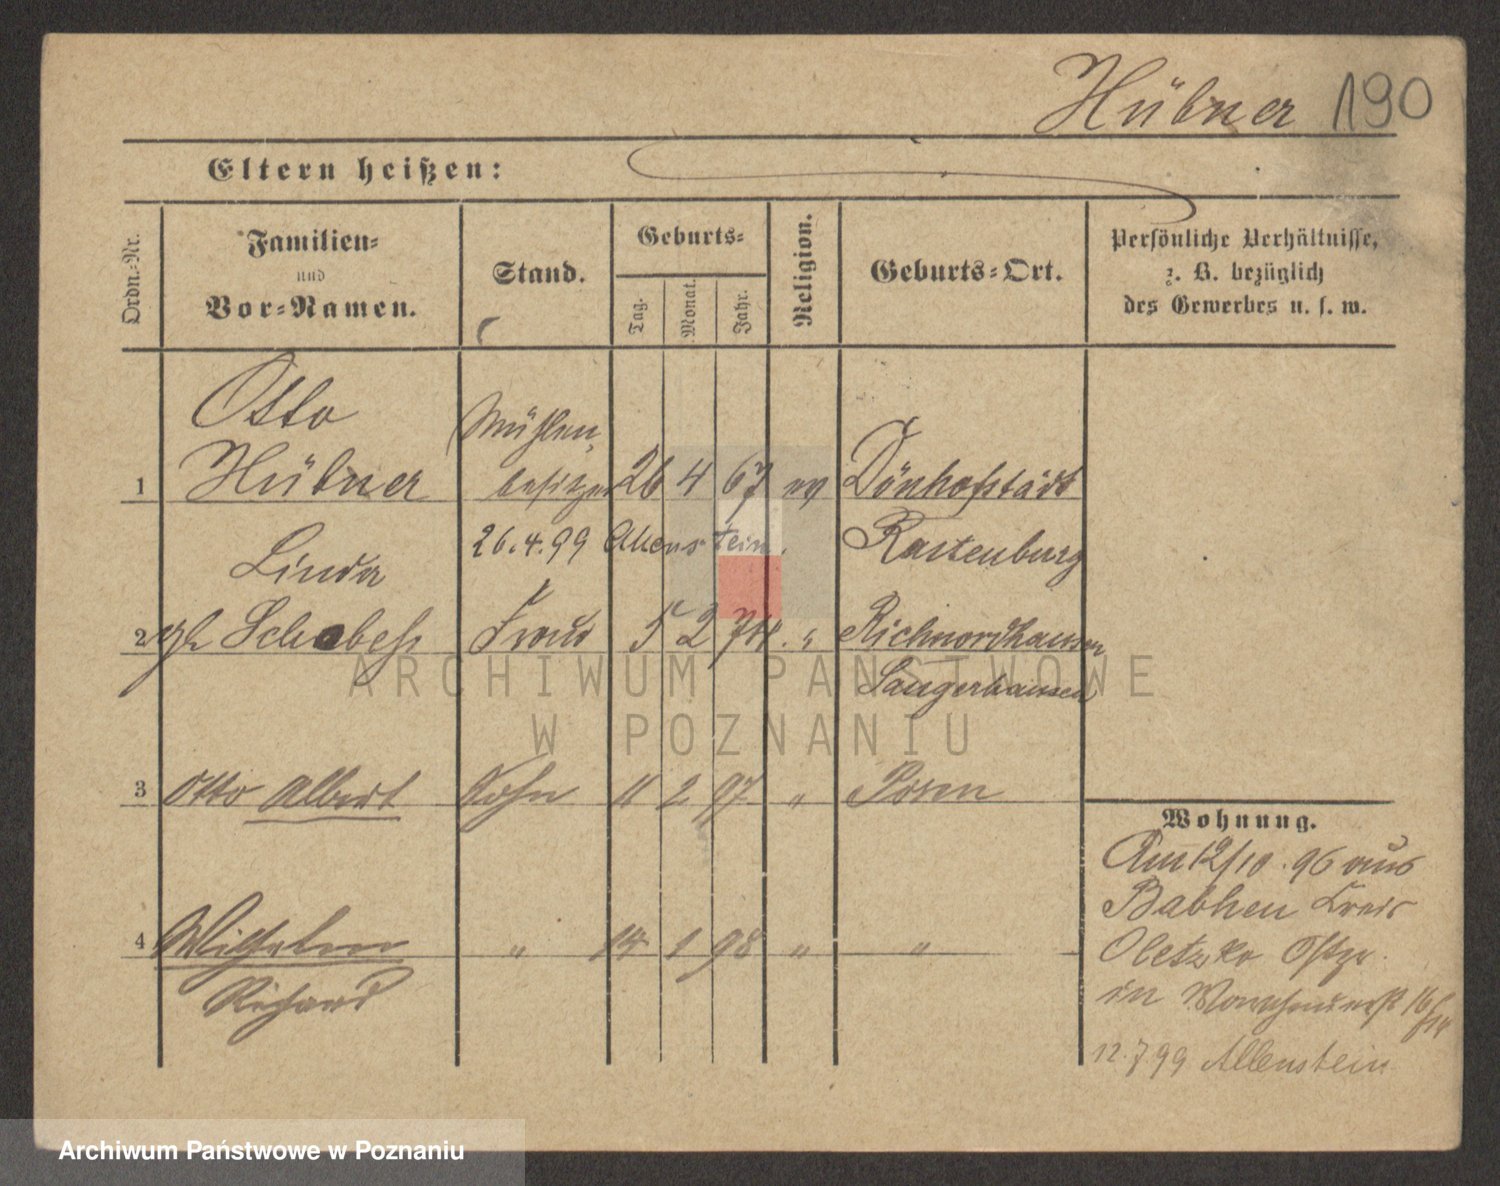 Hübner 190
Eltern heißen:
Ordn.-Nr.
Familien-
und
Vor-Namen.
Stand.
Geburts-
Tag.
Monat.
Jahr.
Religion.
Geburts-Ort.
Persönliche Verhältnisse,
z. B. bezüglich
des Gewerbes u. s. w.
Otto
Mühlen-
1 Hübner besitzer 26 4 67 ev Dönhofstädt
26.4.99 Allenstein. Rastenburg
Linda
2 Schobess Frau 5 2 74 " Richnordhausen
Sangerhausen
3 Otto Albert Sohn 11 2 97 " Posen
4 Wilhelm " 14 1 98 " "
Richard
Wohnung.
Am 12/10.96 aus
Babken Kreis
Oletzko Ostpr.
in
12.7.99 Allenstein
ARCHIWUM PAŃSTWOWE
W POZNANIU
Archiwum Państwowe w Poznaniu